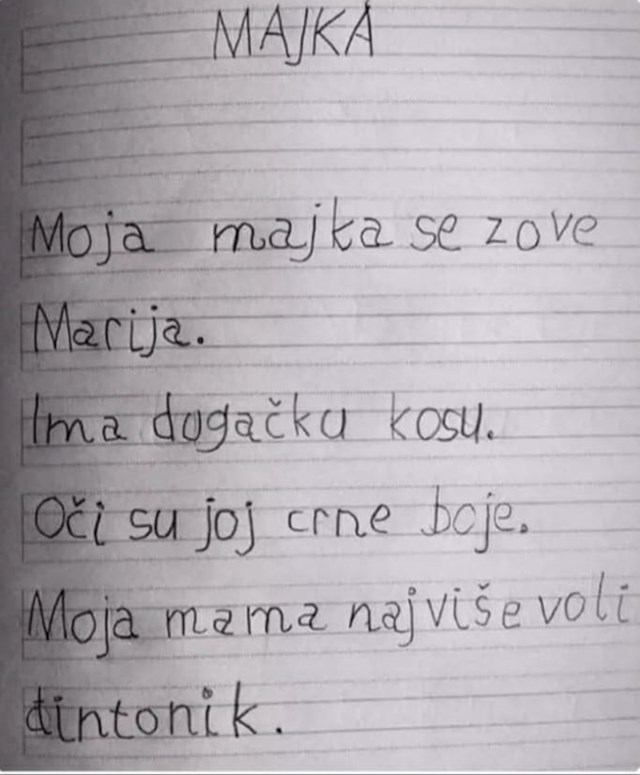 MAJKA
Moja majka se zove
Marija.
Ima dogačku kosu.
Oči su joj crne boje.
Moja mama najviše voli
đintonik.